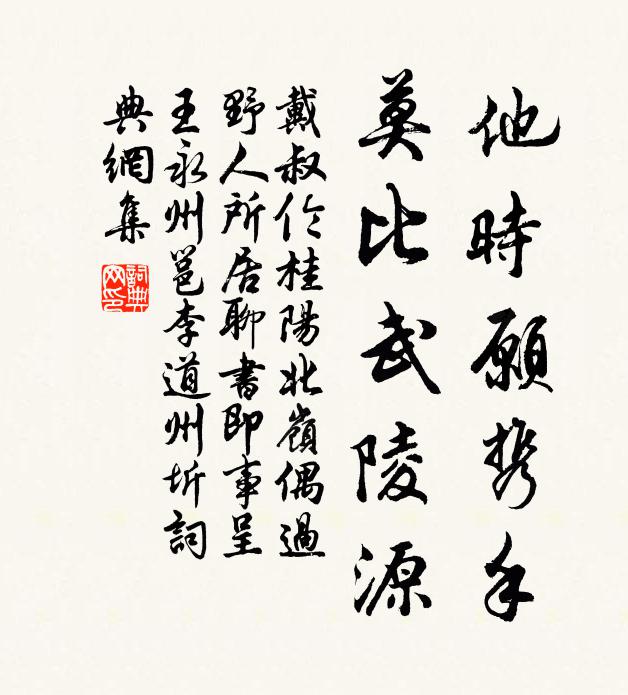 他時願携手
莫比武陵源
戴叔伦桂陽北嶺偶過
野人所居聊書即事呈
王永州邕李道州圻詞
典網集
詞典
网印